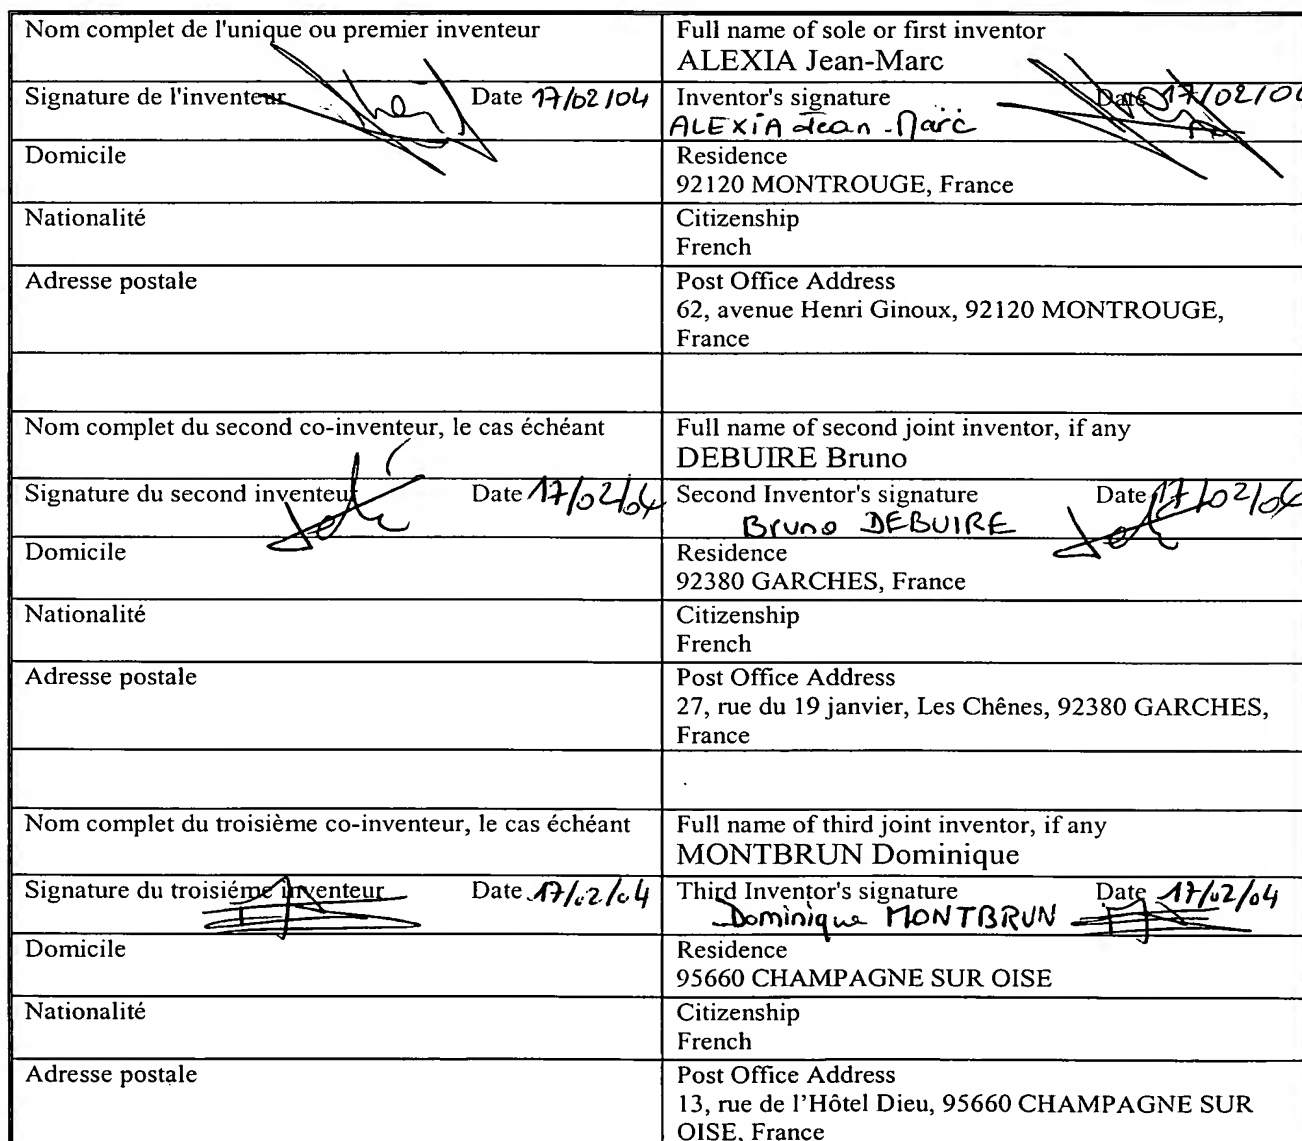 Nom complet de l'unique ou premier inventeur
Full name of sole or first inventor
ALEXIA Jean-Marc
Signature de l'inventeur Date 17/02/04
Inventor's signature Date 17/02/04
ALEXiA Jean-Marc
Domicile
Residence
92120 MONTROUGE, France
Nationalité
Citizenship
French
Adresse postale
Post Office Address
62, avenue Henri Ginoux, 92120 MONTROUGE,
France
Nom complet du second co-inventeur, le cas échéant
Full name of second joint inventor, if any
DEBUIRE Bruno
Signature du second inventeur Date 17/02/04
Second Inventor's signature Date 17/02/04
Bruno DEBUIRE
Domicile
Residence
92380 GARCHES, France
Nationalité
Citizenship
French
Adresse postale
Post Office Address
27, rue du 19 janvier, Les Chênes, 92380 GARCHES,
France
Nom complet du troisième co-inventeur, le cas échéant
Full name of third joint inventor, if any
MONTBRUN Dominique
Signature du troisiéme inventeur Date 17/02/04
Third Inventor's signature Date 17/02/04
Dominique MONTBRUN
Domicile
Residence
95660 CHAMPAGNE SUR OISE
Nationalité
Citizenship
French
Adresse postale
Post Office Address
13, rue de l'Hôtel Dieu, 95660 CHAMPAGNE SUR
OISE, France